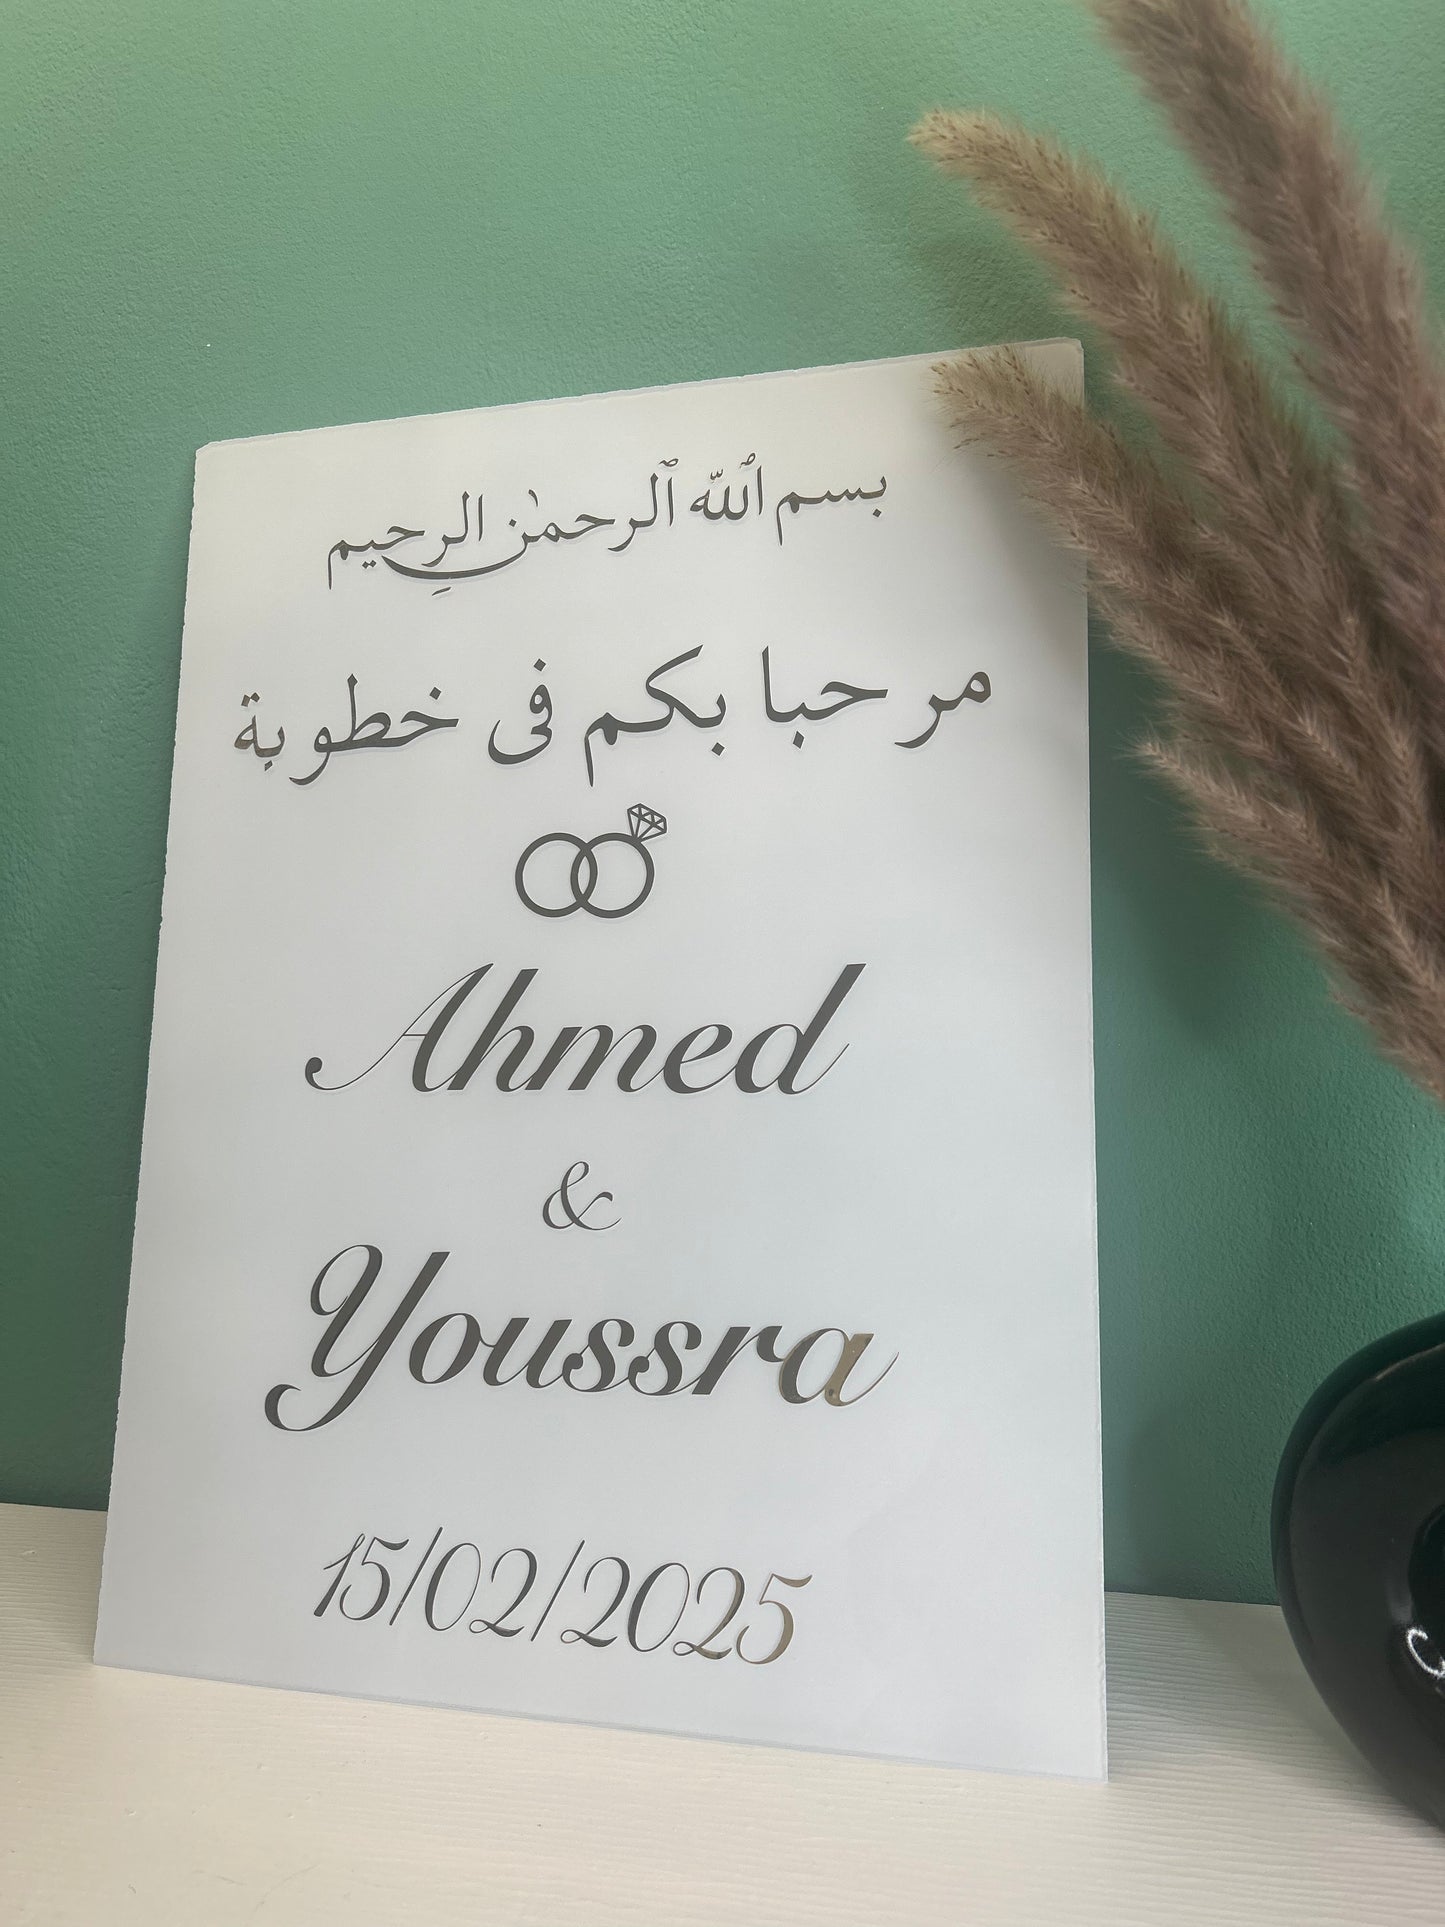 بسم ٱللّٰه ٱلرحمٰن الرِحيم
مرحبا بكم فى خطوبة
Ahmed
&
Youssra
15/02/2025